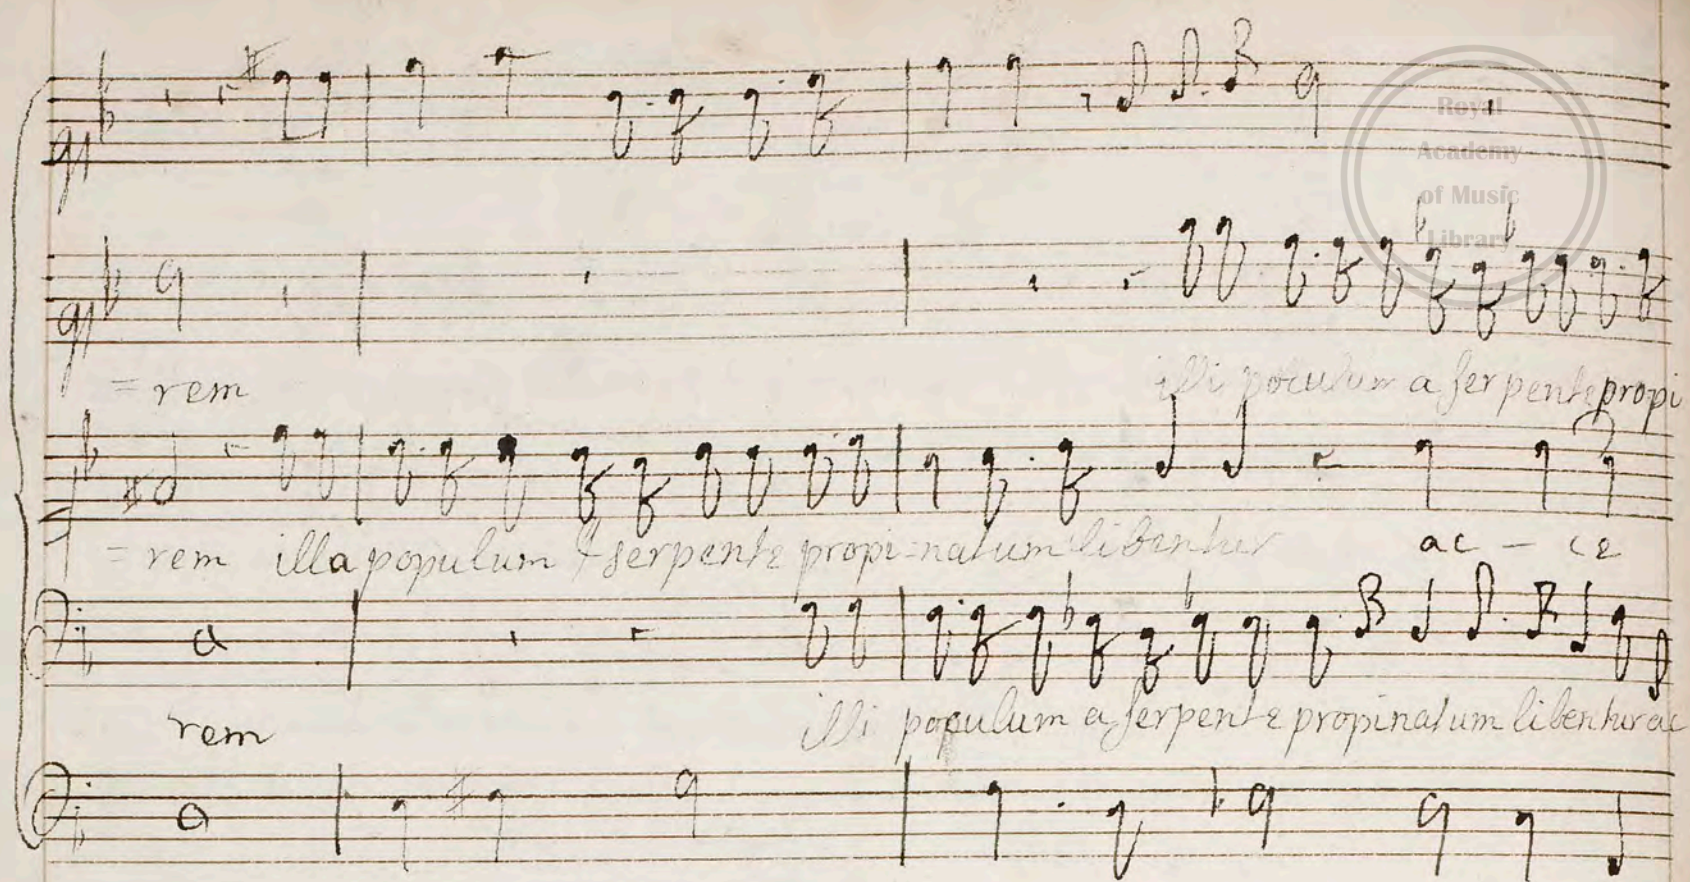 Royal
Academy
of Music
Library
= rem illi poculum a serpente propi
= rem illa populum a serpente propi=natum libenter ac - ce
rem illi populum a serpente propinatum libentur ac